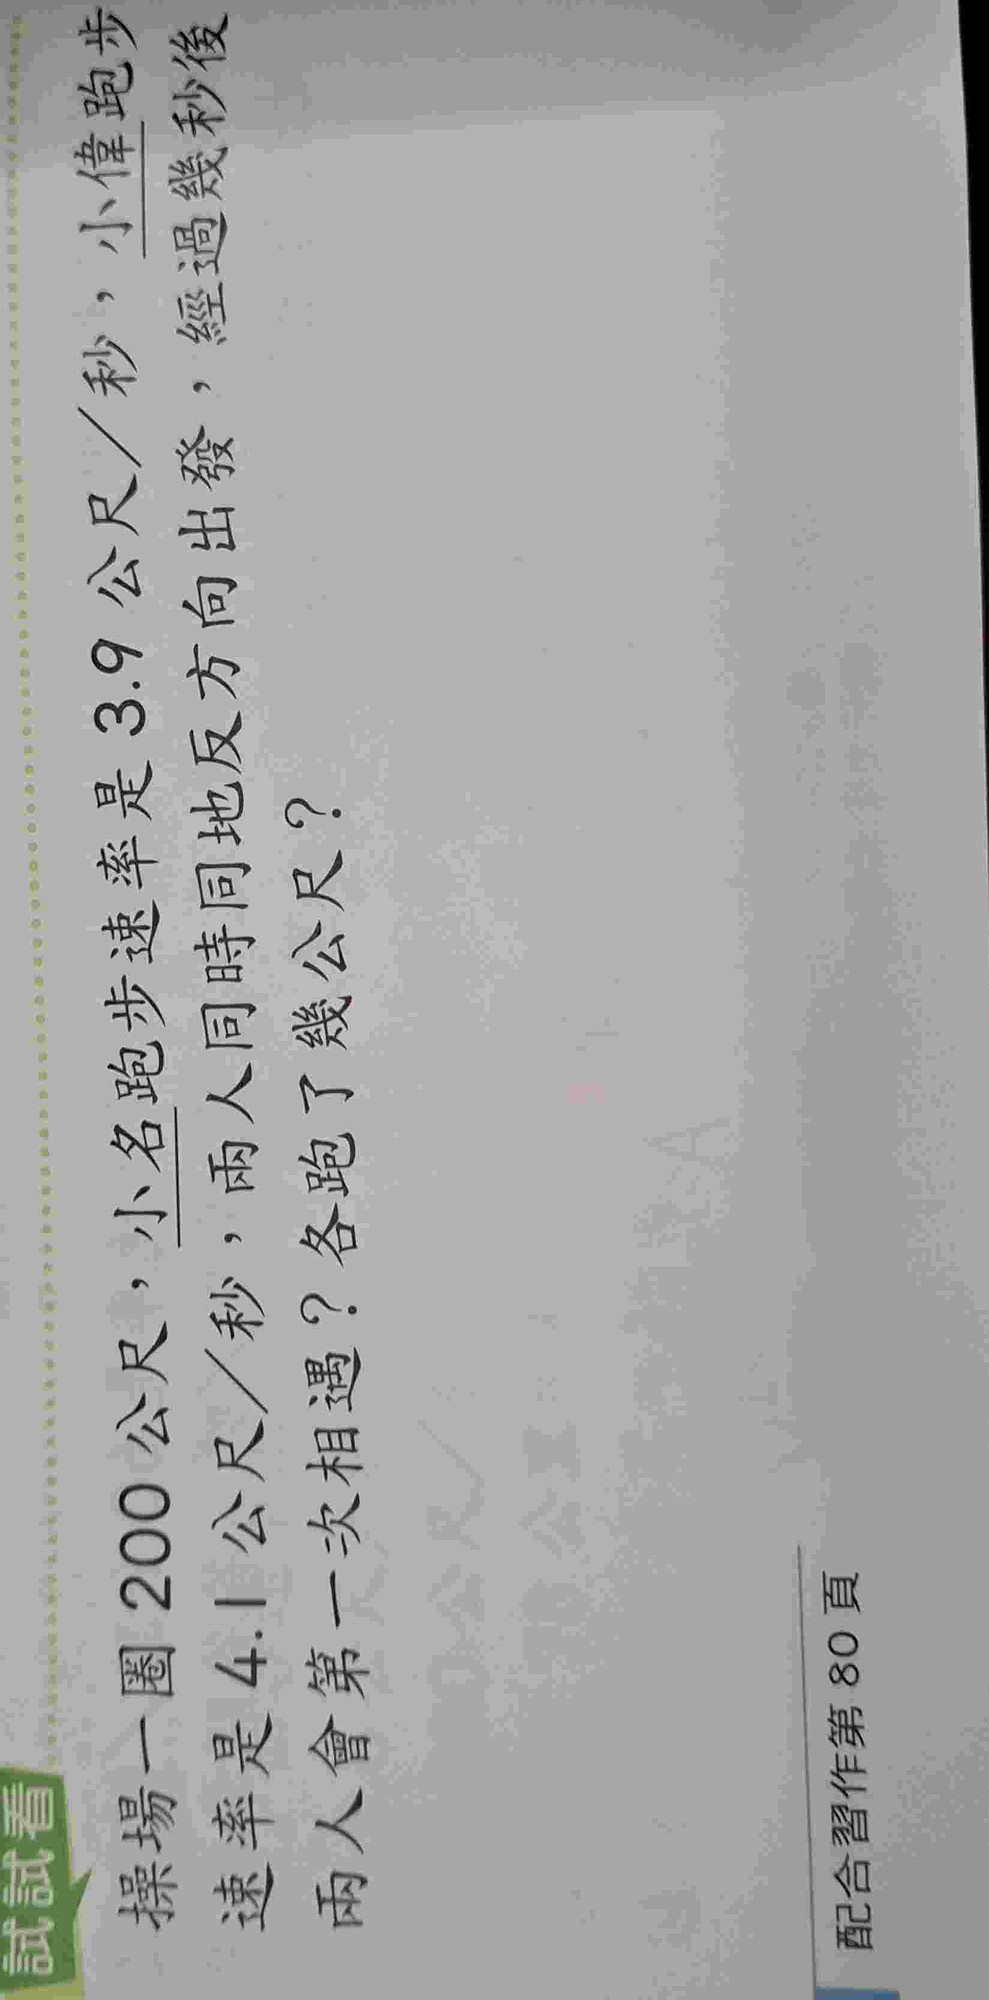 試試看
操場一圈 200 公尺，小名跑步速率是 3.9 公尺／秒，小偉跑步
速率是 4.1 公尺／秒，兩人同時同地反方向出發，經過幾秒後
兩人會第一次相遇？各跑了幾公尺？
配合習作第 80 頁